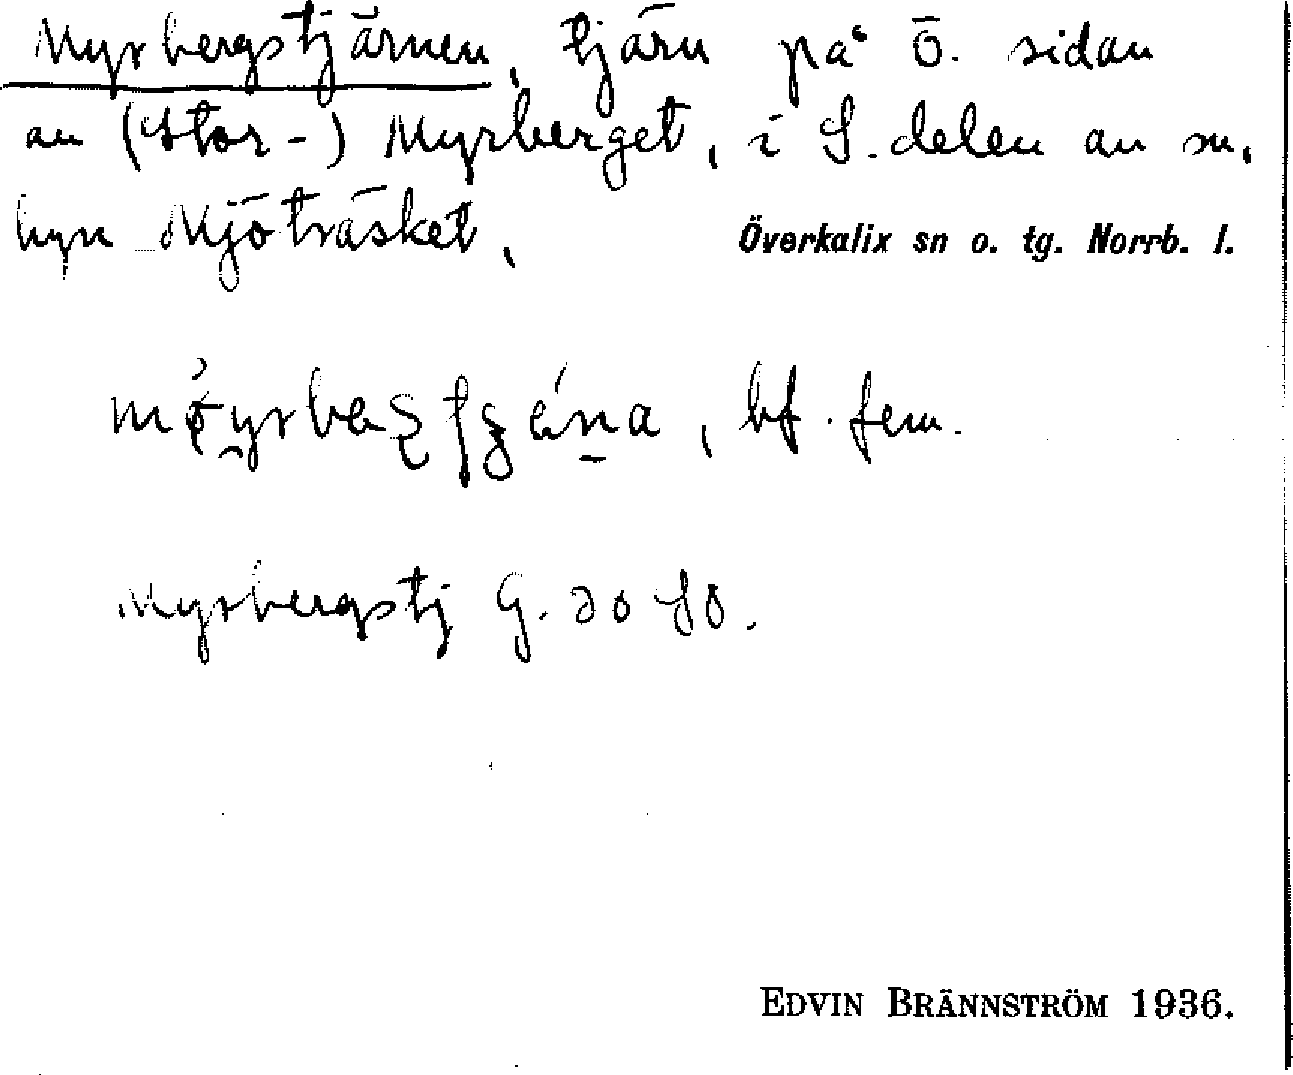 Myrbergstjärnen, tjärn på Ö. sidan
av (Stor-) Myrberget, i S. delen av sn,
byn Mjöträsket.
Överkalix sn o. tg. Norrb. l.
, bf. fem.
Myrbergstj G.
EDVIN BRÄNNSTRÖM 1936.